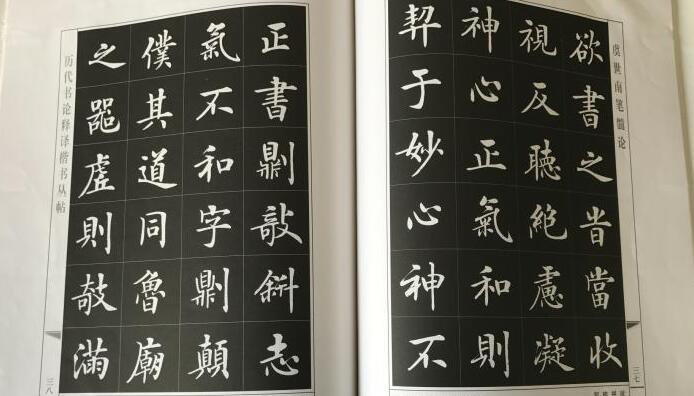 虞世南笔髓论
欲書之旹當收
視反聽絕慮凝
神心正氣和則
契于妙心神不
三七
正書則敧斜志
氣不和字則顛
僕其道同魯廟
之器虛則敧滿
历代书论释译楷书丛帖
三八